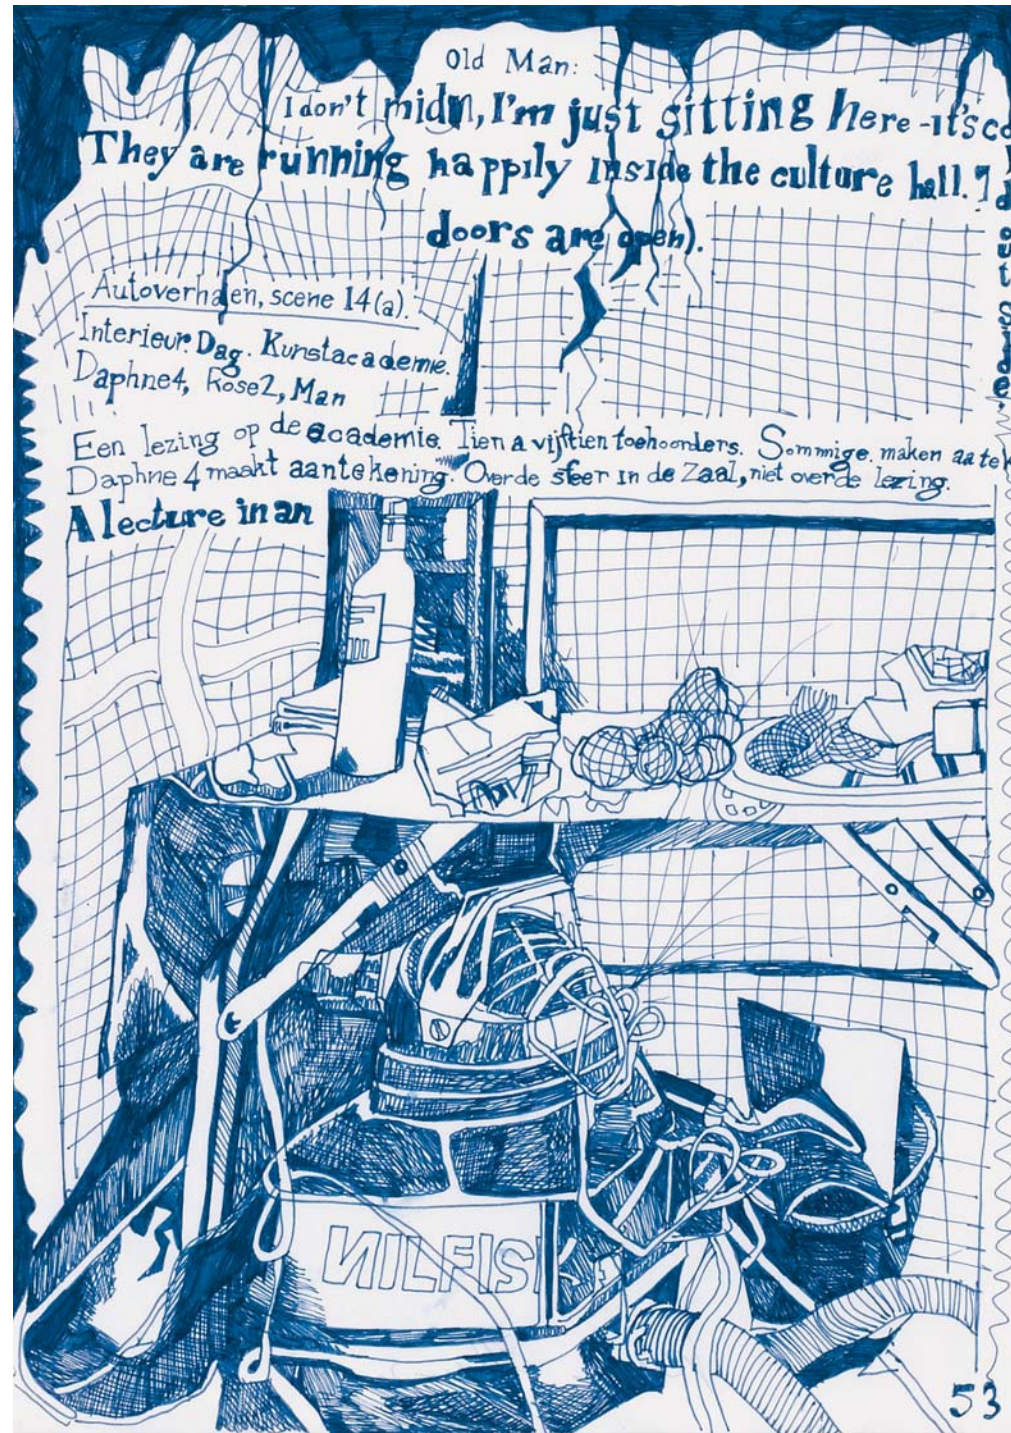 Old Man:
I don't midn, I'm just sitting here - it's co
They are running happily inside the culture hall.
doors are open).
out side.
Autoverhalen, scene 14(a).
Interieur. Dag. Kunstacademie.
Daphne4, Rose2, Man
Een lezing op de academie. Tien a vijftien toehoorders. Sommige. maken aatek
Daphne 4 maakt aantekening. Over de sfeer in de Zaal, niet over de lezing.
A lecture in an
NILFISK
53